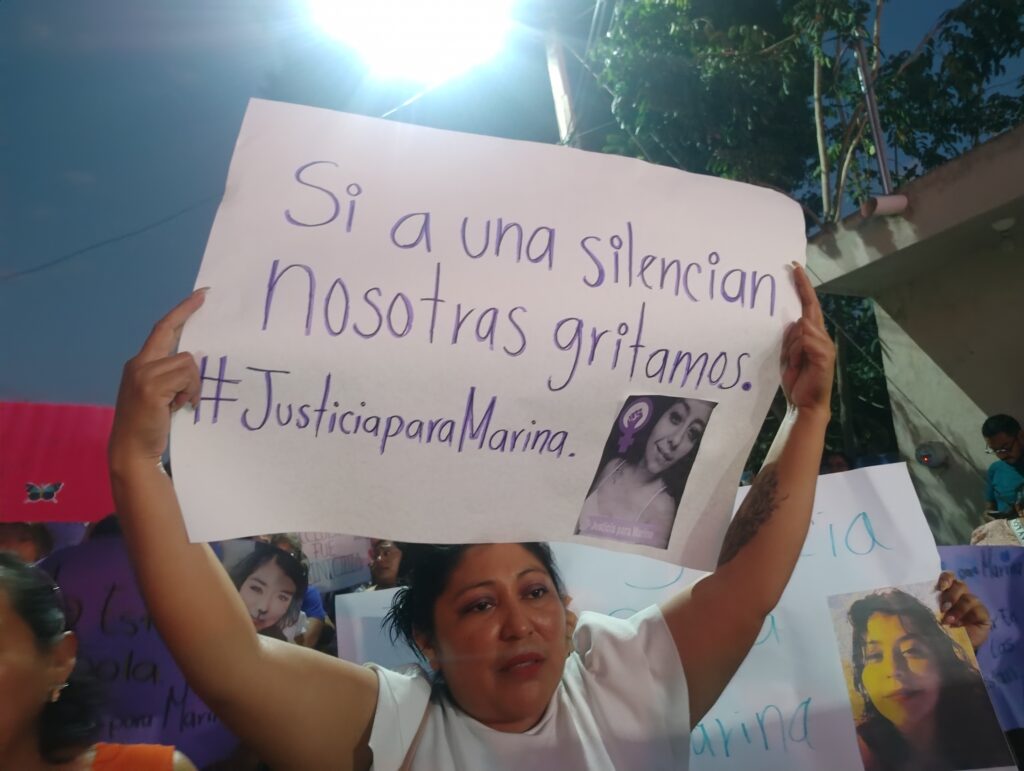 Si a una silencian
nosotras gritamos.
#JusticiaparaMarina.
Justicia para Marina
FUE
para Mari
arina
para Marin